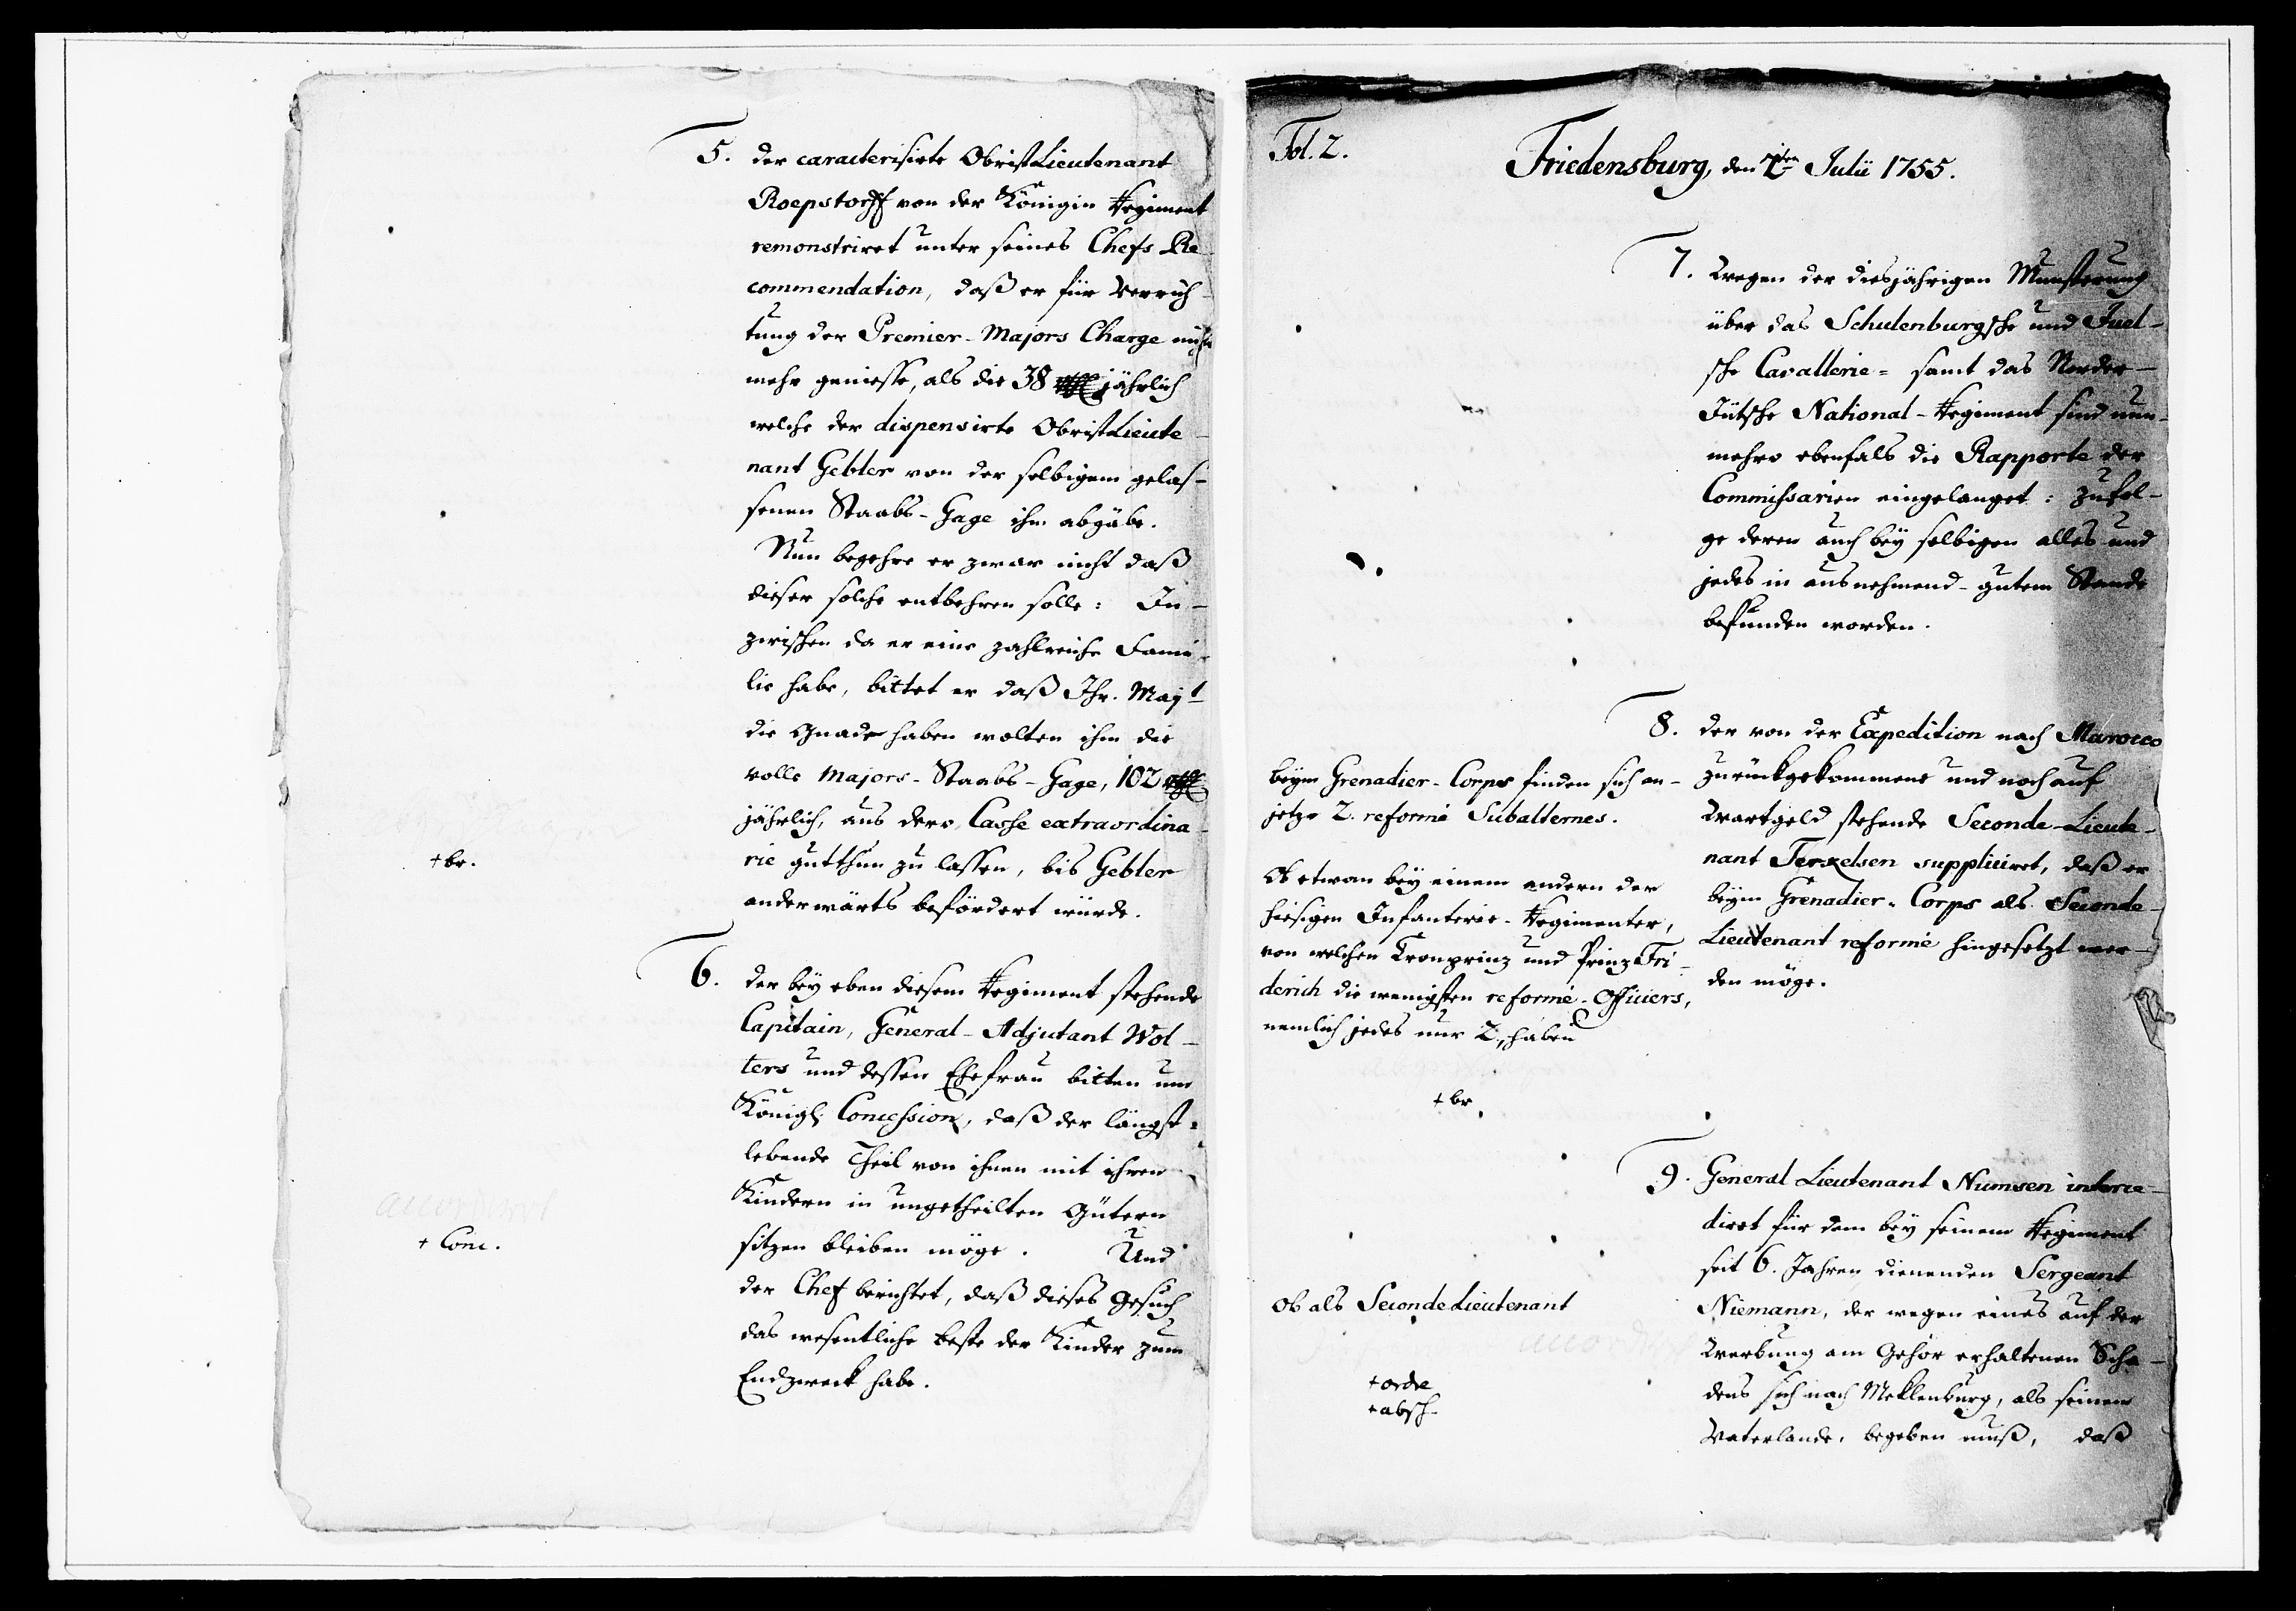 5. der caracterisirte ObristLieutenant
Roepstorff von der Königin Regiment
remonstriret unter seines Chefs Re-
commendation, daß er für Verrich-
tung der Premier-Majors Charge nicht
mehr geniesse, als die 38 jährlich
welche der dispensirte ObristLieute-
nant Gebler von der selbigem gelas-
senen Staabs-Gage ihm abgäbe.
Nun begehre er zwar nicht daß
dieser solche entbehren solle: In-
zwischen da er eine zahlreiche Fami-
lie habe, bittet er daß Ihr. Majt
die Gnade haben wolten ihm die
volle Majors-Staabs-Gage, 102
jährlich, aus dero Casse extraordina-
rie gutthun zu lassen, bis Gebler
anderwärts befördert würde.
+br.
6. der bey eben diesem Regiment stehende
Capitain, General-Adjutant Wol-
ters und dessen Ehefrau bitten um
Königl. Concession, daß der längst-
lebende Theil von ihnen mit ihren
Kindern in ungetheilten Gütern
sitzen bleiben möge. Und
der Chef berichtet, daß dieses Gesuch
das wesentliche beste der Kinder zum
Endzweck habe.
accordiret
+ Conc.
Fol. 2.
Friedensburg, den Julii 1755.
7. Wegen der diesjährigen Munsterung
über das Schulenburgsche und Juel-
sche Cavallerie= samt das Norder-
Jütsche National-Regiment sind nun-
mehro ebenfals die Rapporte der
Commissarien eingelanget: zufol-
ge deren auch bey selbigen alles und
jedes in ausnehmend-gutem Stande
befunden worden.
8. der von der Expedition nach Marocco
zurückgekommene und noch auf
Wartgeld stehende Seconde-Lieute-
nant Terkelsen suppliciret, daß er
beym Grenadier-Corps als Seconde-
Lieutenant reformé hingesetzt wer-
den möge.
beym Grenadier-Corps finden sich an-
jetzo 2. reformé Subalternes.
Ob etwan bey einem andern der
hiesigen Infanterie-Regimenter,
von welchen Cronprinz und Prinz Fri-
derich die wenigsten reformé-Officiers,
nemlich jedes nur 2, haben
+br
9. General Lieutenant Numsen interce-
diret für dem bey seinem Regiment
seit 6. Jahren dienenden Sergeant
Niemann, der wegen eines auf der
Werbung am Gehör erhaltenen Scha-
dens sich nach Meklenburg, als seinem
Vaterlande, begeben muß, daß
ob als SecondeLieutenant
+ordre
+absch.